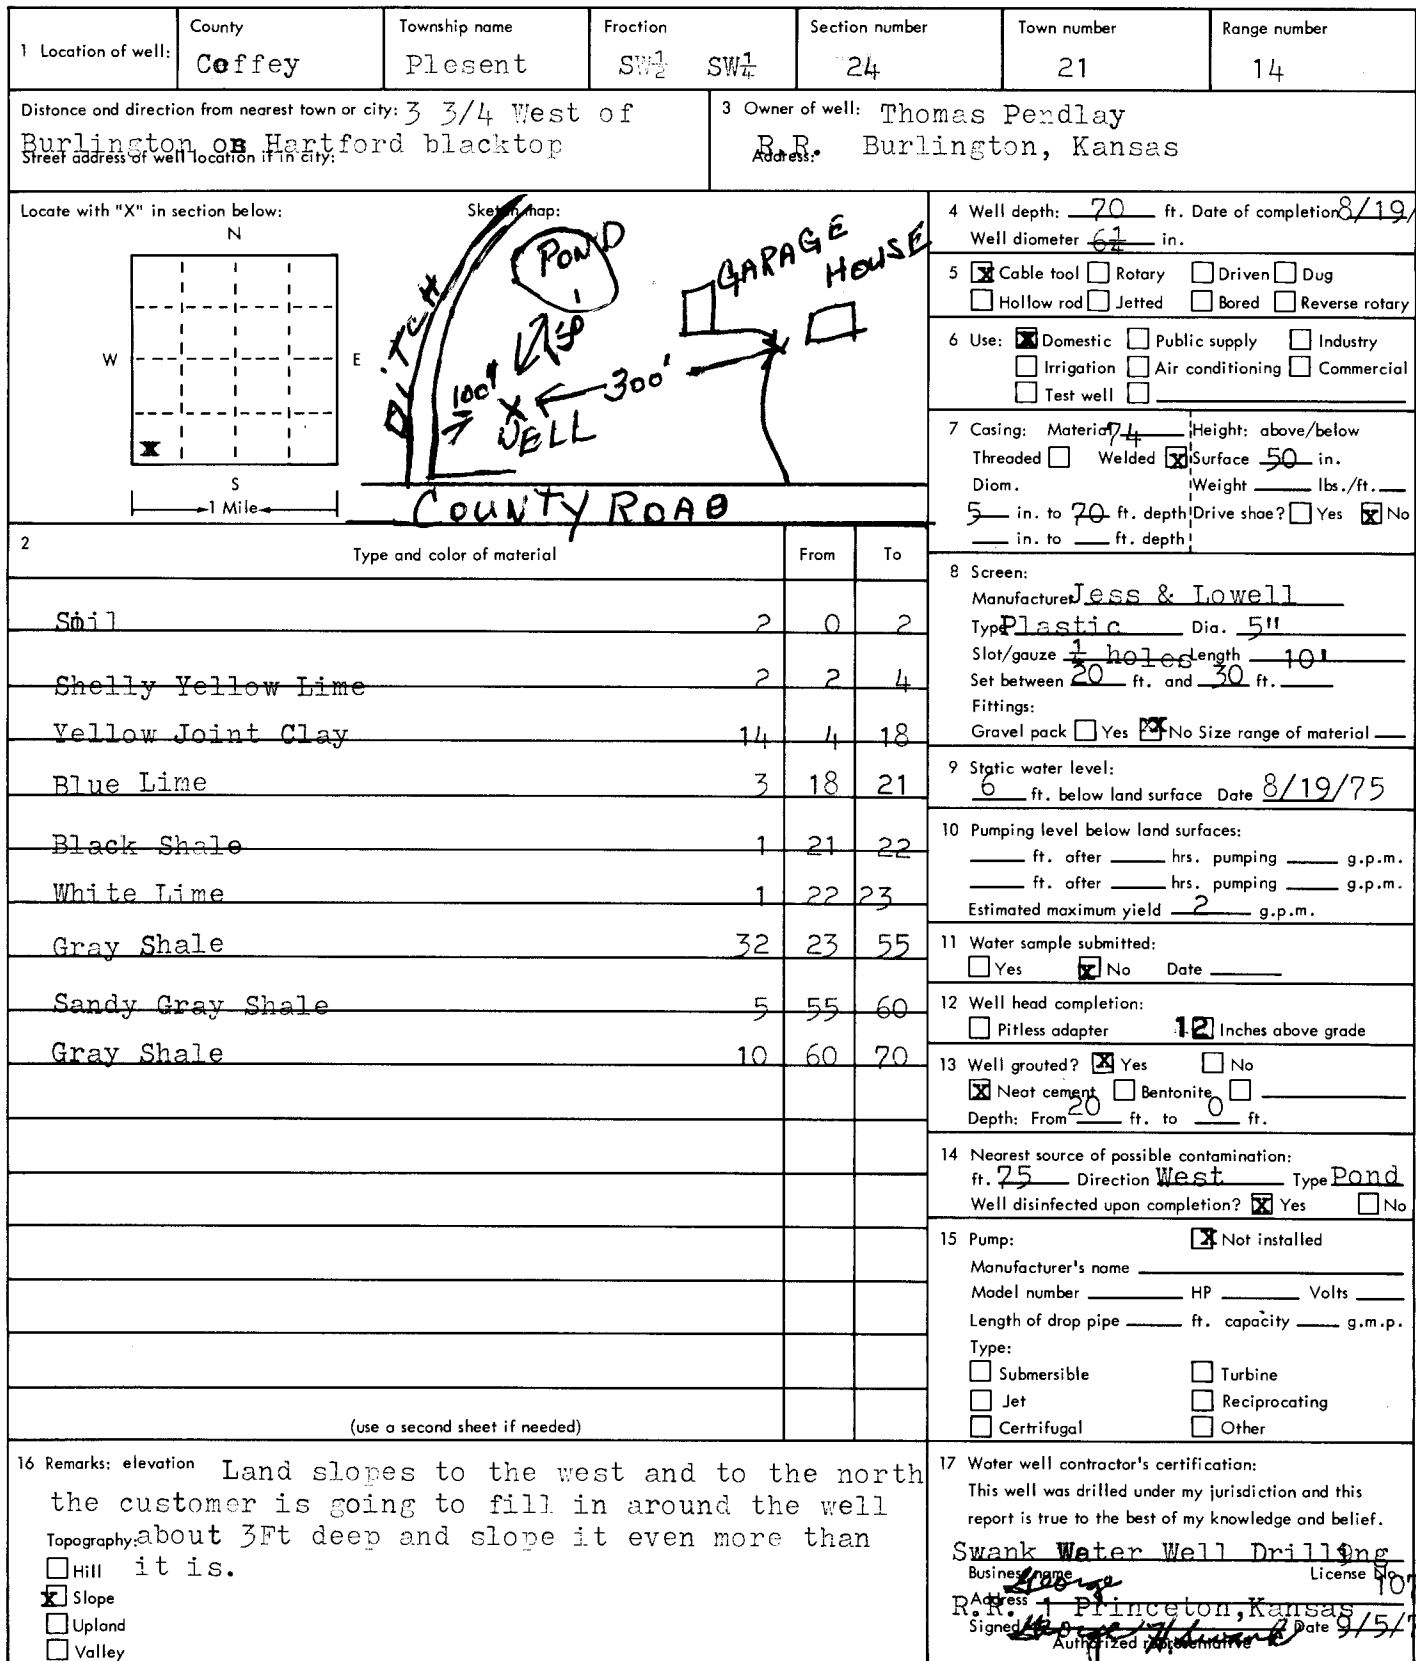 1 Location of well: County Coffey Township name Plesent Froction SW½ SW¼ Section number 24 Town number 21 Range number 14
Distonce and direction from nearest town or city: 3 3/4 West of
Burlington on Hartford blacktop
Street address of well location if in city:
3 Owner of well: Thomas Pendlay
Address: R.R. Burlington, Kansas
Locate with "X" in section below:
N
W E
X
S
1 Mile
Sketch map:
POND
GARAGE
HOUSE
DITCH
50'
100'
300'
X
WELL
COUNTY ROAD
2 Type and color of material From To
Soil 2 0 2
Shelly Yellow Lime 2 2 4
Yellow Joint Clay 14 4 18
Blue Lime 3 18 21
Black Shale 1 21 22
White Lime 1 22 23
Gray Shale 32 23 55
Sandy Gray Shale 5 55 60
Gray Shale 10 60 70
(use a second sheet if needed)
4 Well depth: 70 ft. Date of completion 8/19/
Well diometer 6¼ in.
5 X Cable tool Rotary Driven Dug
Hollow rod Jetted Bored Reverse rotary
6 Use: X Domestic Public supply Industry
Irrigation Air conditioning Commercial
Test well
7 Casing: Material 74 Height: above/below
Threaded Welded X Surface 50 in.
Diom. Weight lbs./ft.
5 in. to 70 ft. depth Drive shoe? Yes X No
in. to ft. depth
8 Screen:
Manufacturer Jess & Lowell
Type Plastic Dia. 5"
Slot/gauze ¼ holes Length 10'
Set between 20 ft. and 30 ft.
Fittings:
Gravel pack Yes XX No Size range of material
9 Static water level:
6 ft. below land surface Date 8/19/75
10 Pumping level below land surfaces:
ft. after hrs. pumping g.p.m.
ft. after hrs. pumping g.p.m.
Estimated maximum yield 2 g.p.m.
11 Water sample submitted:
Yes X No Date
12 Well head completion:
Pitless adapter 12 Inches above grade
13 Well grouted? X Yes No
X Neat cement Bentonite
Depth: From 20 ft. to 0 ft.
14 Nearest source of possible contamination:
ft. 75 Direction West Type Pond
Well disinfected upon completion? X Yes No
15 Pump: X Not installed
Manufacturer's name
Model number HP Volts
Length of drop pipe ft. capacity g.m.p.
Type:
Submersible Turbine
Jet Reciprocating
Certrifugal Other
16 Remarks: elevation Land slopes to the west and to the north
the customer is going to fill in around the well
Topography: about 3Ft deep and slope it even more than
Hill it is.
X Slope
Upland
Valley
17 Water well contractor's certification:
This well was drilled under my jurisdiction and this
report is true to the best of my knowledge and belief.
Swank Water Well Drilling
Business name License No. 107
George
Address R.R. 1 Princeton, Kansas
Signed George H. Swank Date 9/5/7
Authorized representative